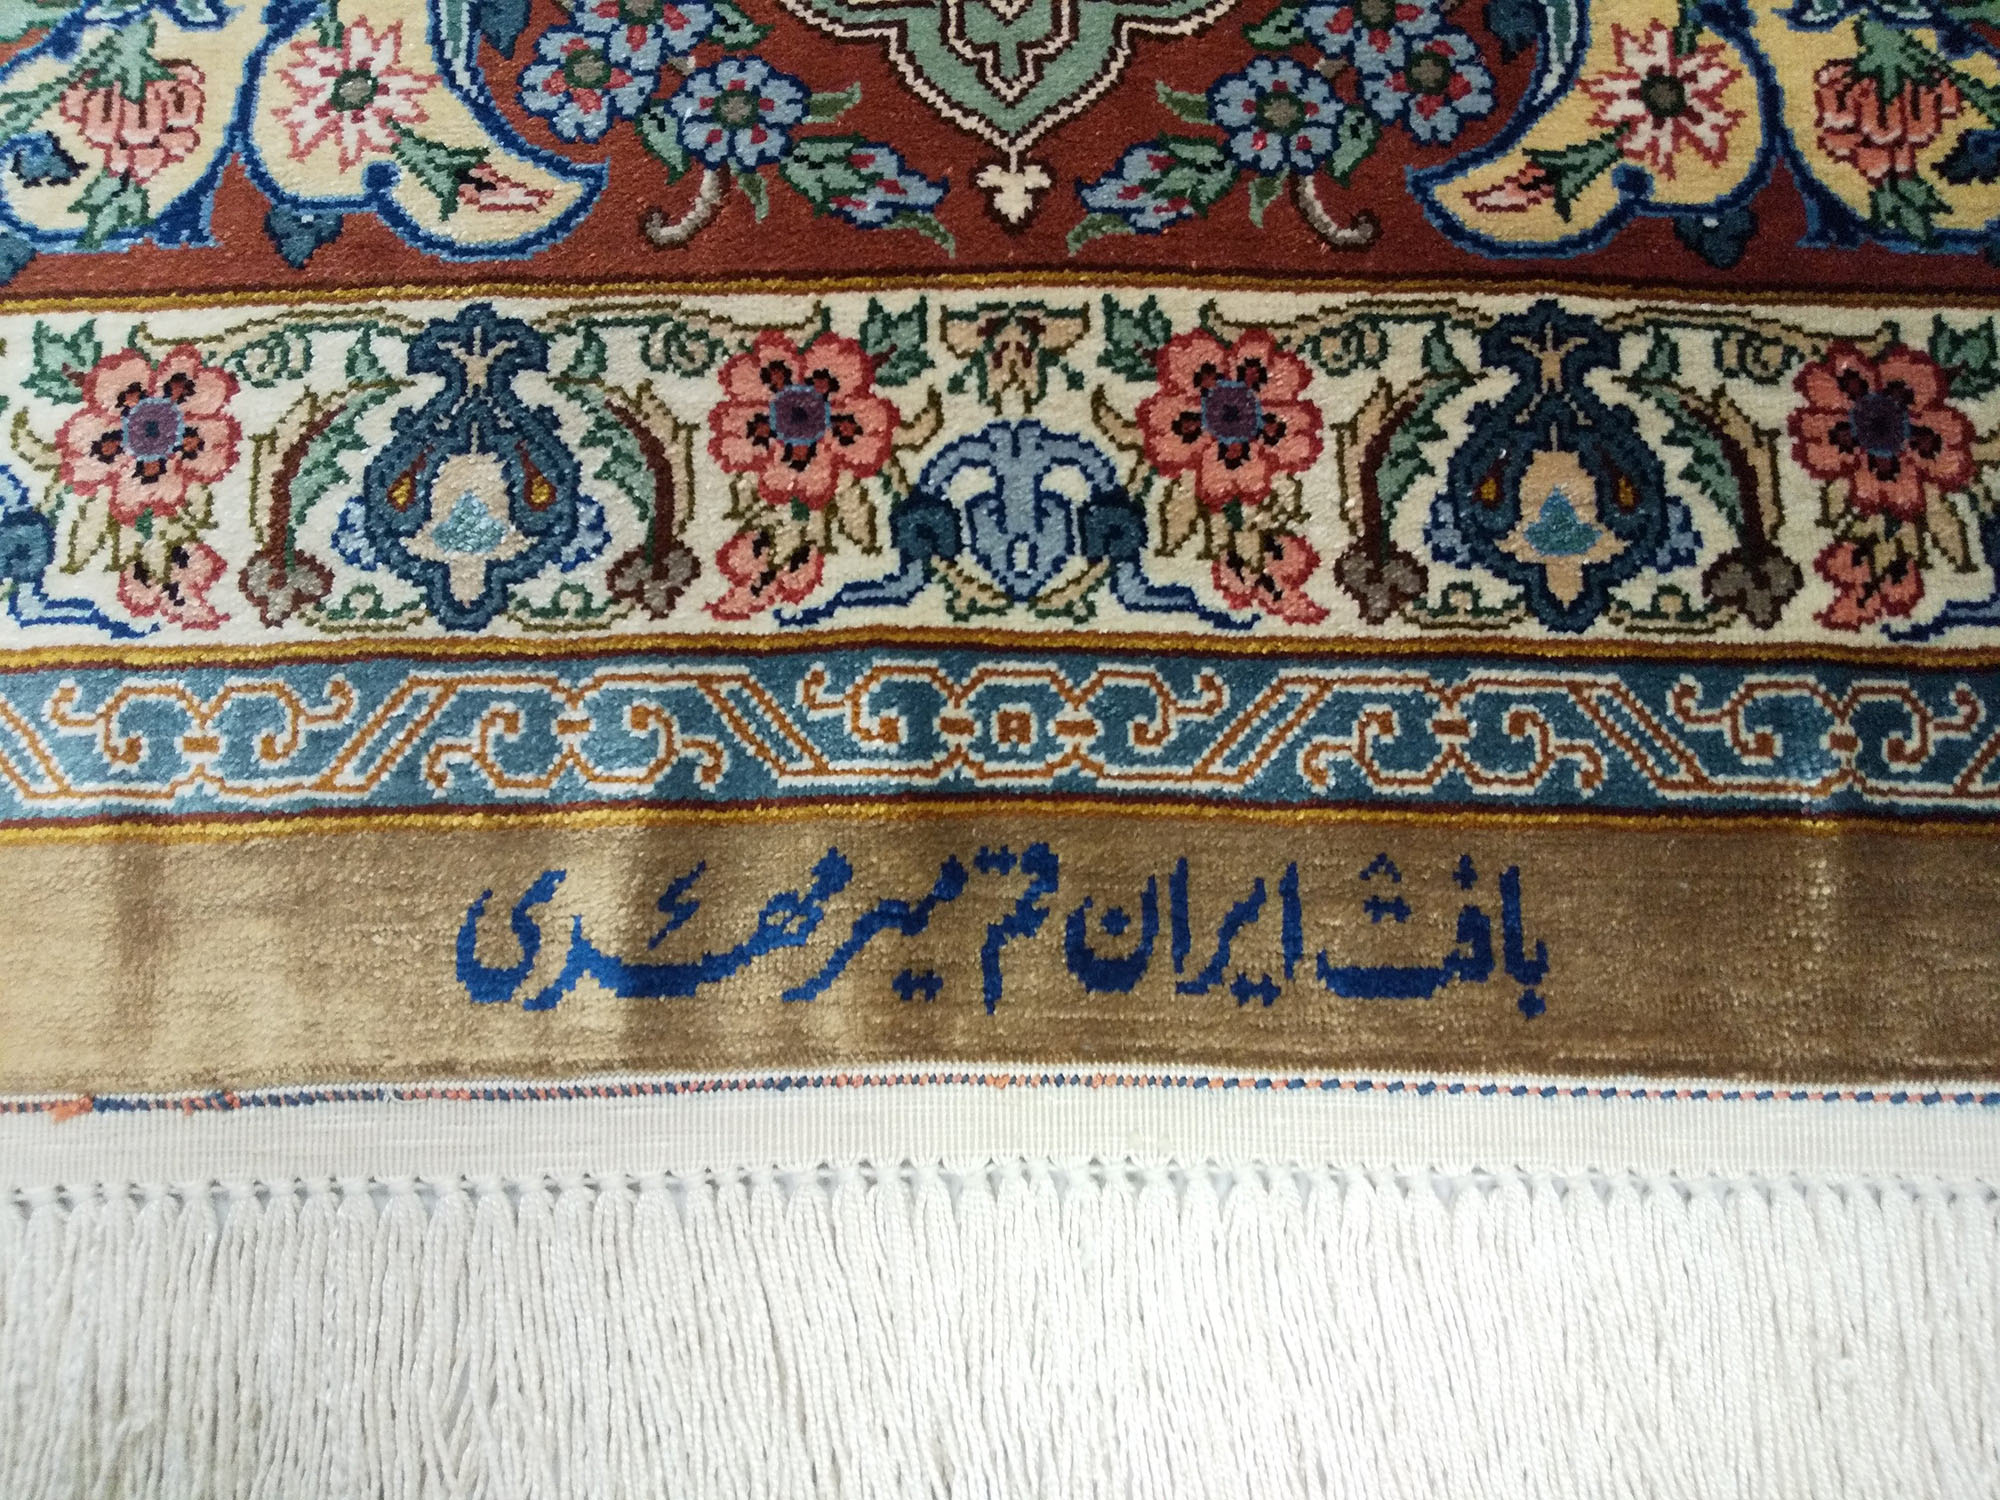 بافت ایران قم میرمهدی